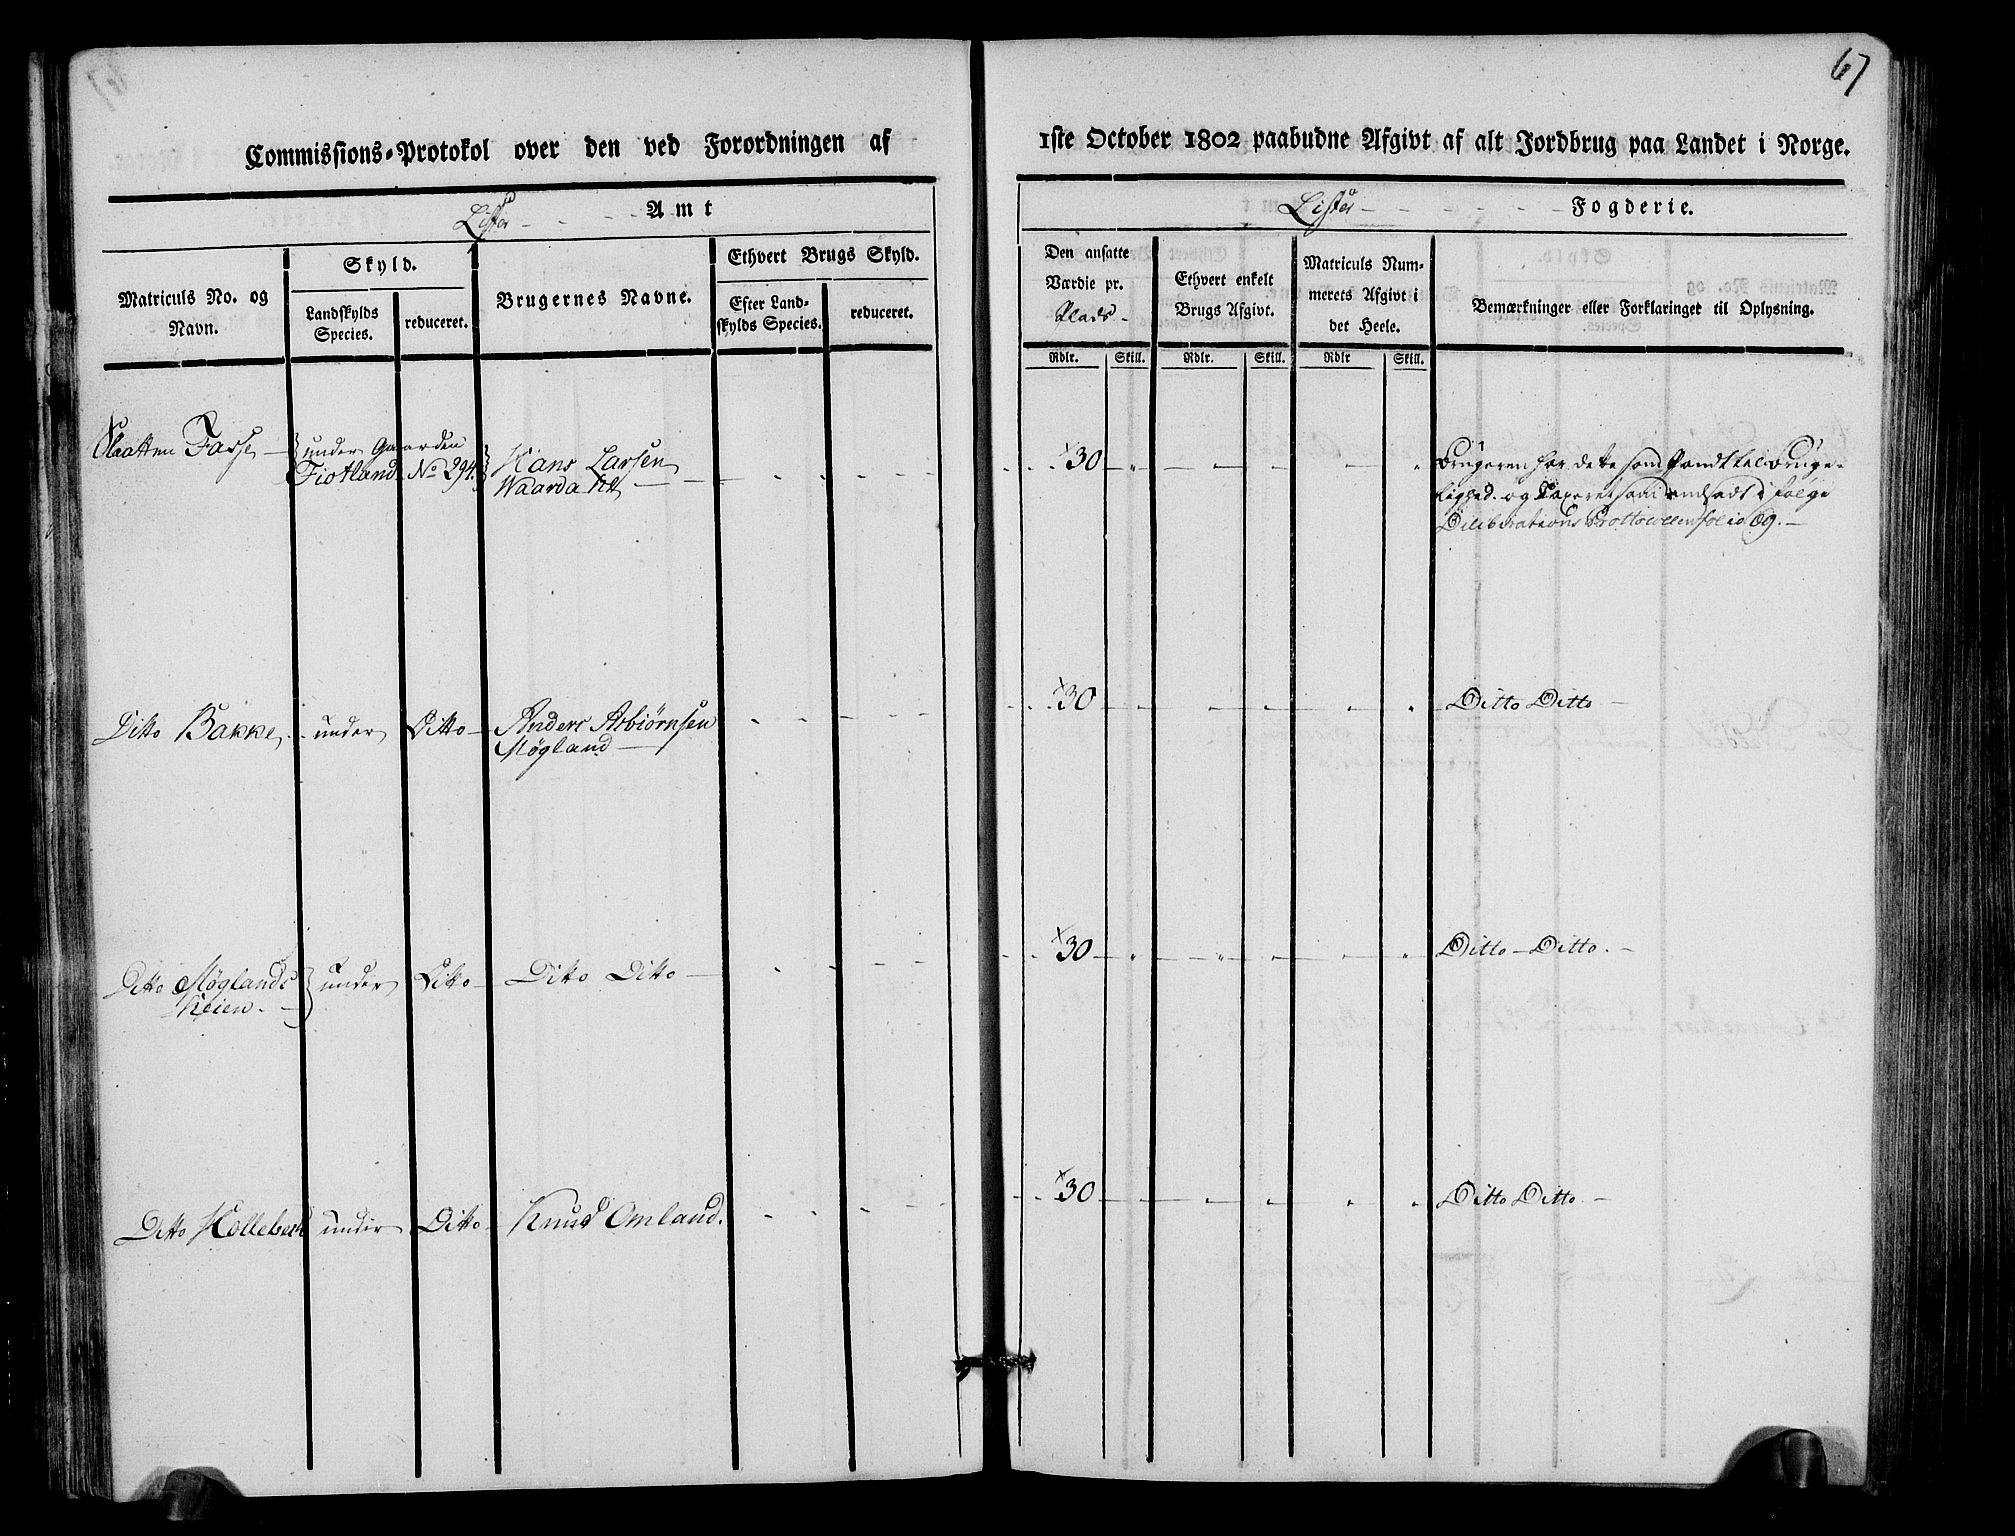 67
Commissions-Protokol over den ved Forordningen af 1ste October 1802 paabudne Afgivt af alt Jordbrug paa Landet i Norge.
Lister Amt
Lister Fogderie.
Matriculs No. og Navn.
Skyld.
Landskylds Species.
reduceret.
Brugernes Navne.
Ethvert Brugs Skyld.
Efter Landskylds Species.
reduceret.
Den ansatte Værdie pr. Plads
Ethvert enkelt Brugs Afgivt.
Matriculs Nummerets Afgivt i det Heele.
Bemærkninger eller Forklaringer til Oplysning.
Rdlr. Skill. Rdlr. Skill. Rdlr Skill.
under Gaarden
Fiotland No 294.
Hans Larsen
30
Brugeren har dette som
og Taxeret som i følge
Deliberations Prottocollen folio 69.
Ditto Bakke under Ditto Anders Asbiørnsen
Møgland
30 Ditto Ditto
Ditto Møglands
Heien. under Ditto Ditto Ditto
30 Ditto Ditto.
Ditto under Ditto Knud Omland.
30 Ditto Ditto